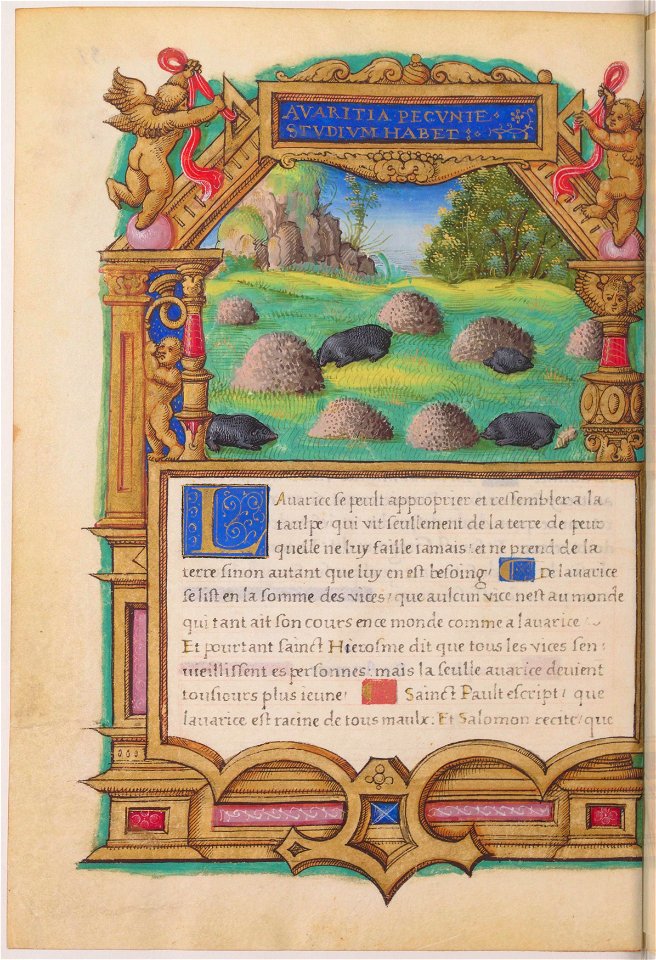 AVARITIA PECVNIE
STVDIVM HABET
LAvarice se peult approprier et ressembler a la
taulpe, qui vit seullement de la terre de peur
quelle ne luy faille iamais, et ne prend de la
terre sinon autant que luy en est besoing, De lavarice
se list en la somme des vices, que aulcun vice nest au monde
qui tant ait son cours en ce monde comme a lavarice
Et pourtant sainct Hierosme dit que tous les vices sen,
vieillissent es personnes, mais la seulle avarice devient
tousiours plus ieune, Sainct Pault escript, que
lavarice est racine de tous maulx. Et Salomon recite, que